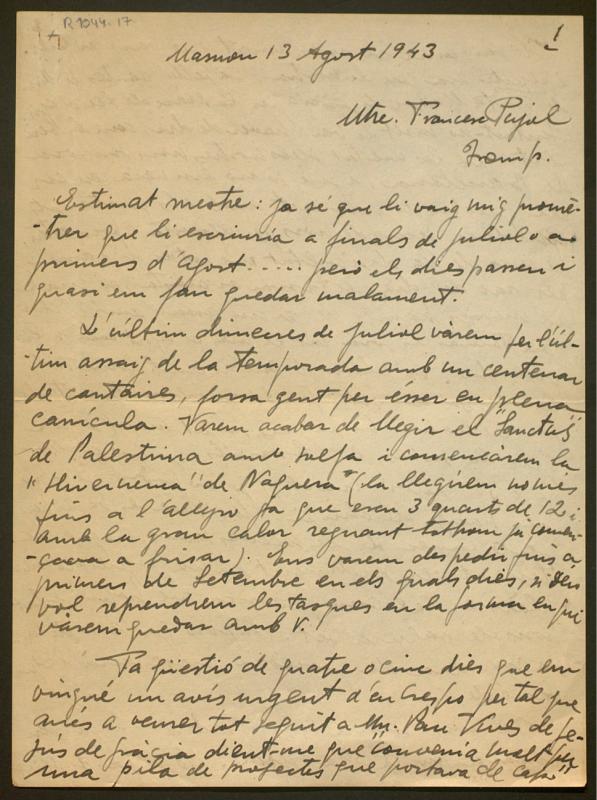 R 1044-17
1
Masnou 13 Agost 1943
Mtre. Francesc Pujol
Estimat mestre: ja sé que li vaig mig promè-
-trer que li escriuria a finals de juliol o a
primers d'Agost..... però els dies passen i
quasi em fan quedar malament.
L'últim dimecres de juliol vàrem fer l'úl-
tim assaig de la temporada amb un centenar
de cantaires, forsa gent per ésser en plena
canícula. Varem acabar de llegir el "Sanctus"
de Palestrina amb solfa i comencàrem la
"Hivernenca" de Noguera (la llegírem només
fins a l'allegro ja que eren 3 quarts de 12 i
amb la gran calor regnant tothom ja comen-
-çava a frisar). Ens varem despedir fins a
primers de Setembre en els quals dies, si Déu
vol reprendrem les tasques en la forma en qui
vàrem quedar amb V.
Fa qüestió de quatre o cinc dies que em
vingué un avís urgent d'en Crespo per tal que
anés a veurer tot seguit a Mn. Pau Vives de Je-
sús de Gràcia dient-me que convenia molt per
una pila de projectes que portava de cap